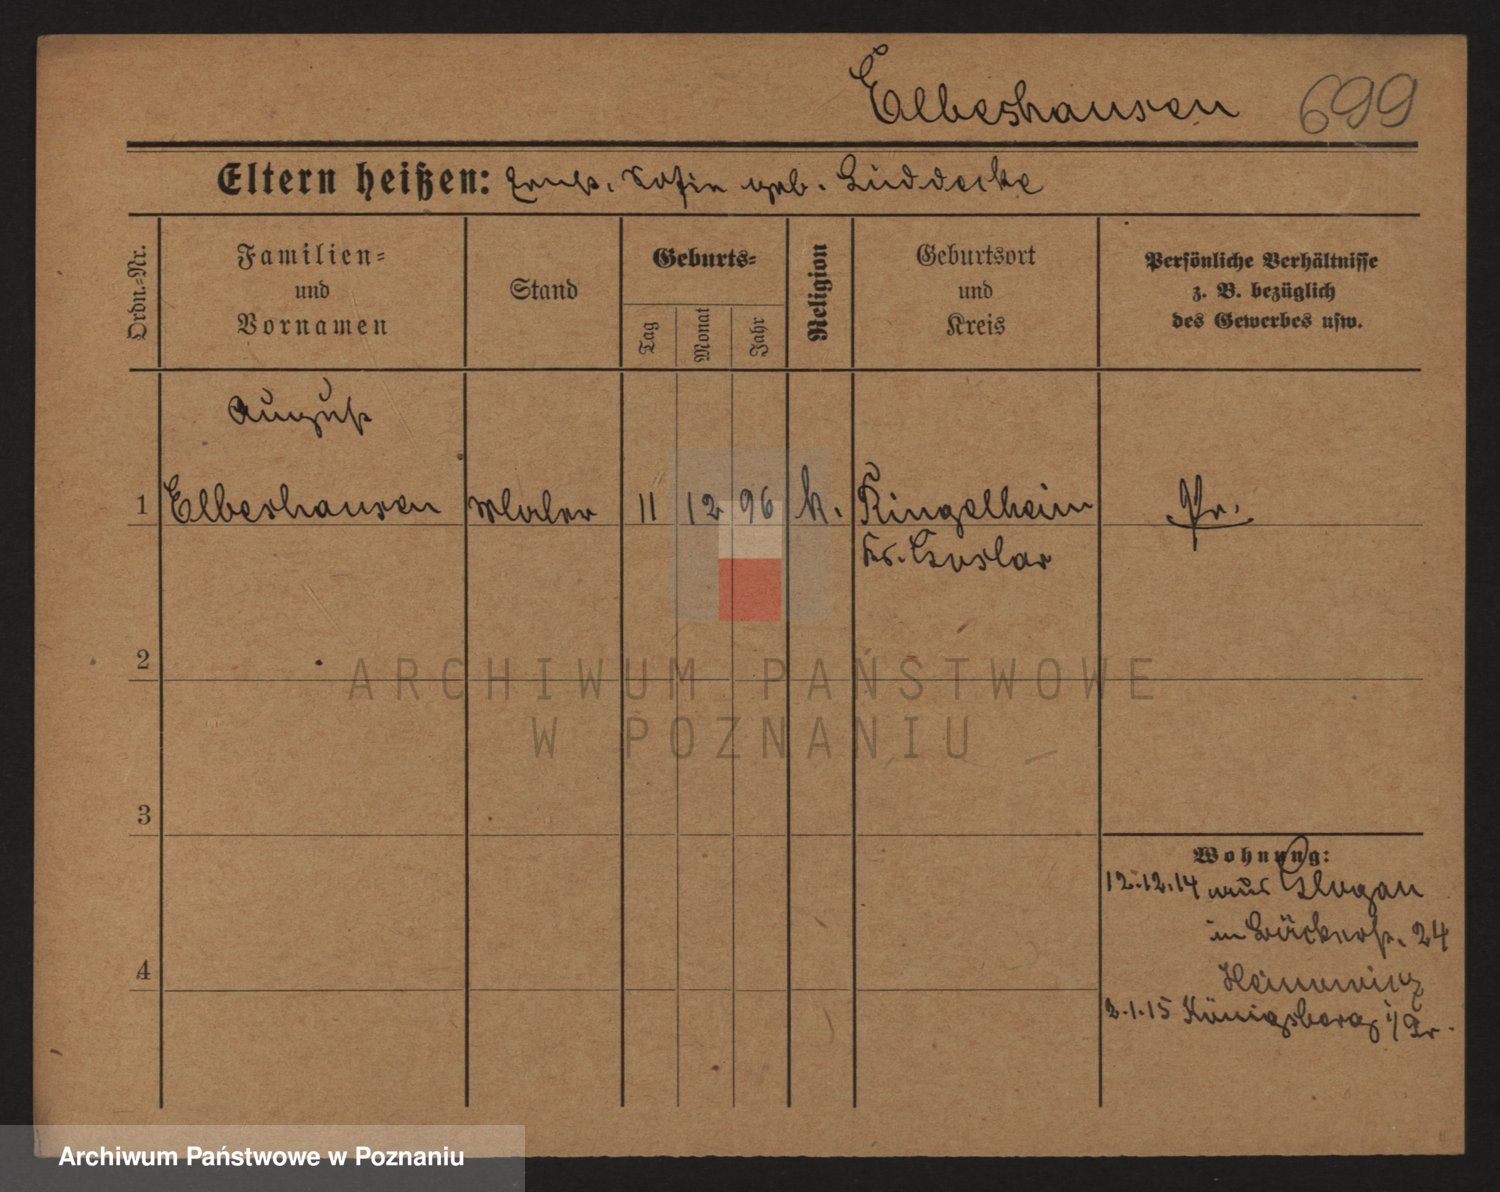 Elbeshausen 699
Eltern heißen: Ernst. Sofie geb. Lüddecke
Ordn.-Nr.
Familien-
und
Vornamen
Stand
Geburts-
Tag
Monat
Jahr
Religion
Geburtsort
und
Kreis
Persönliche Verhältnisse
z. B. bezüglich
des Gewerbes usw.
August
1 Elbeshausen Maler 11 12 96 k. Ringelheim Pr.
Kr. Goslar
2
ARCHIWUM PAŃSTWOWE
W POZNANIU
3
Wohnung:
12.12.14 aus Glogau
in Bäckerst. 24
4
2.1.15 Königsberg i/Pr.
Archiwum Państwowe w Poznaniu